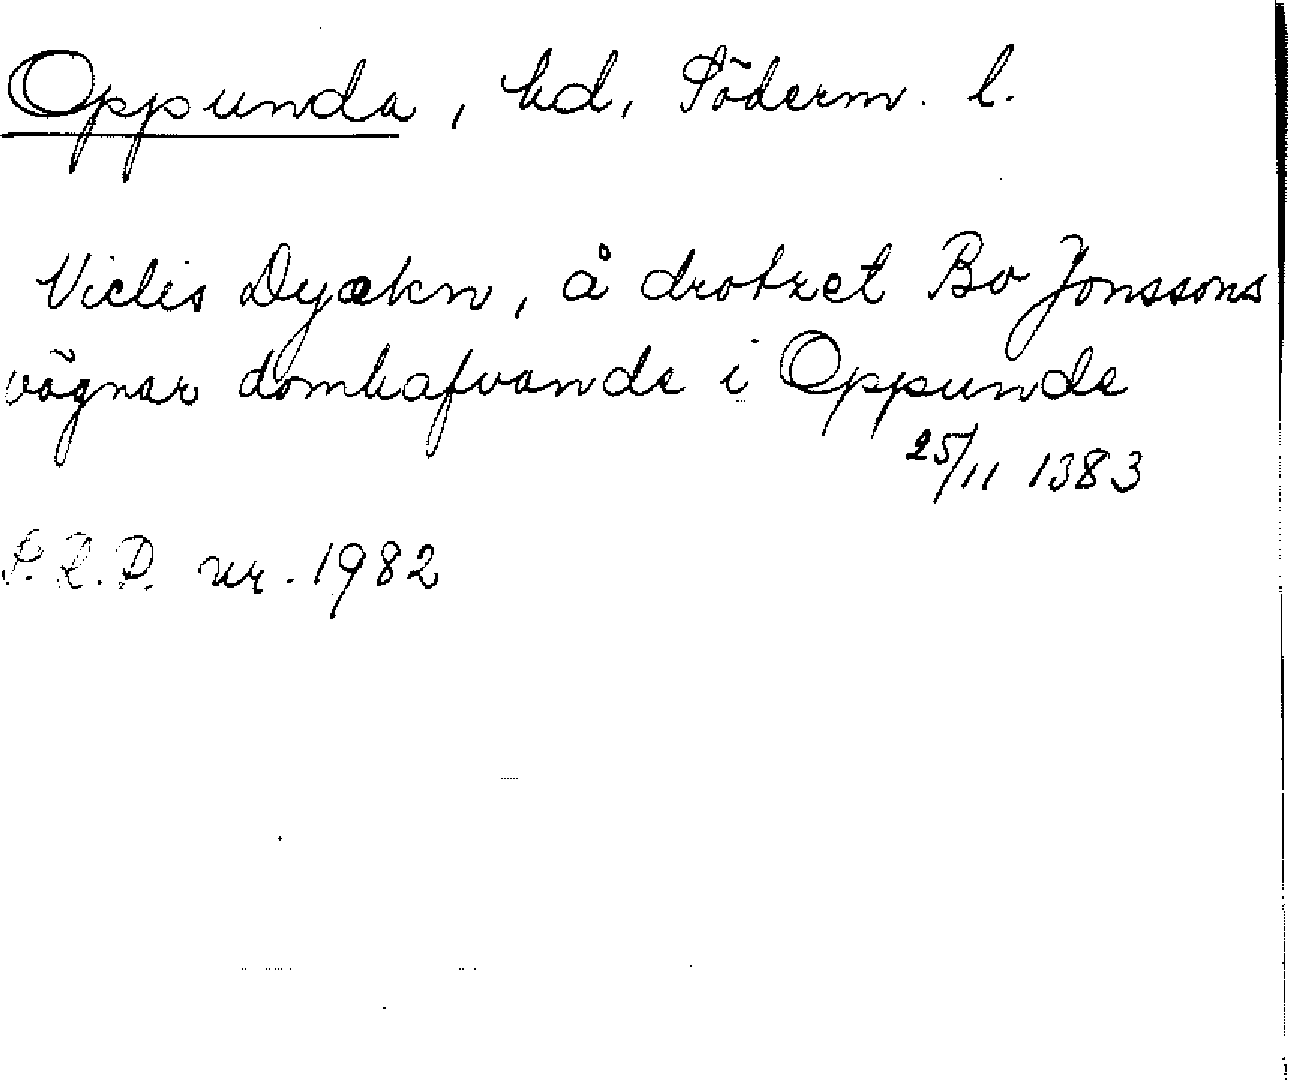 Oppunda, hd, Söderm. l.
Niclis Dyækn, å drotzet Bo Jonssons
vägnar domhafvande i Oppunda
25/11 1383
S.R.P. nr. 1982